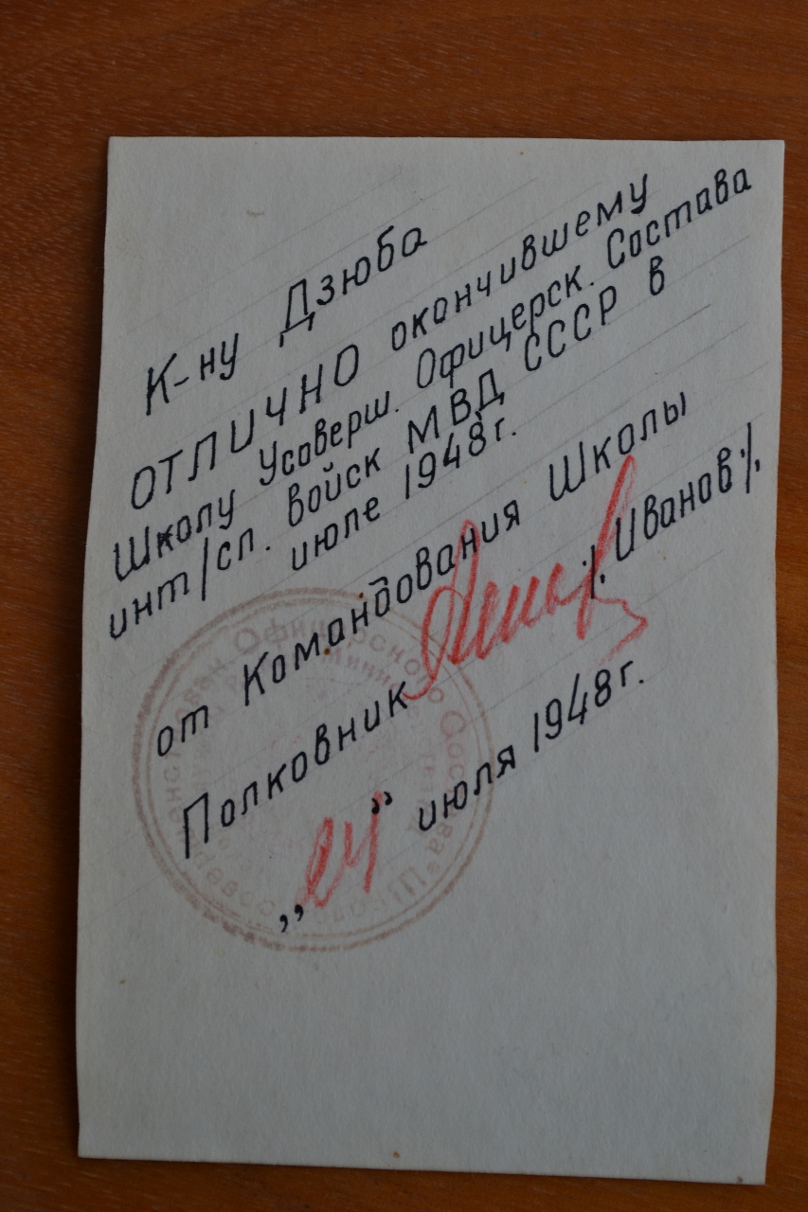 К-ну Дзюба
ОТЛИЧНО окончившему
Школу Усоверш. Офицерск. Состава
инт/сл. войск МВД СССР в
июле 1948г.
от Командования Школы
Полковник /. Иванов /.
„24“ июля 1948г.